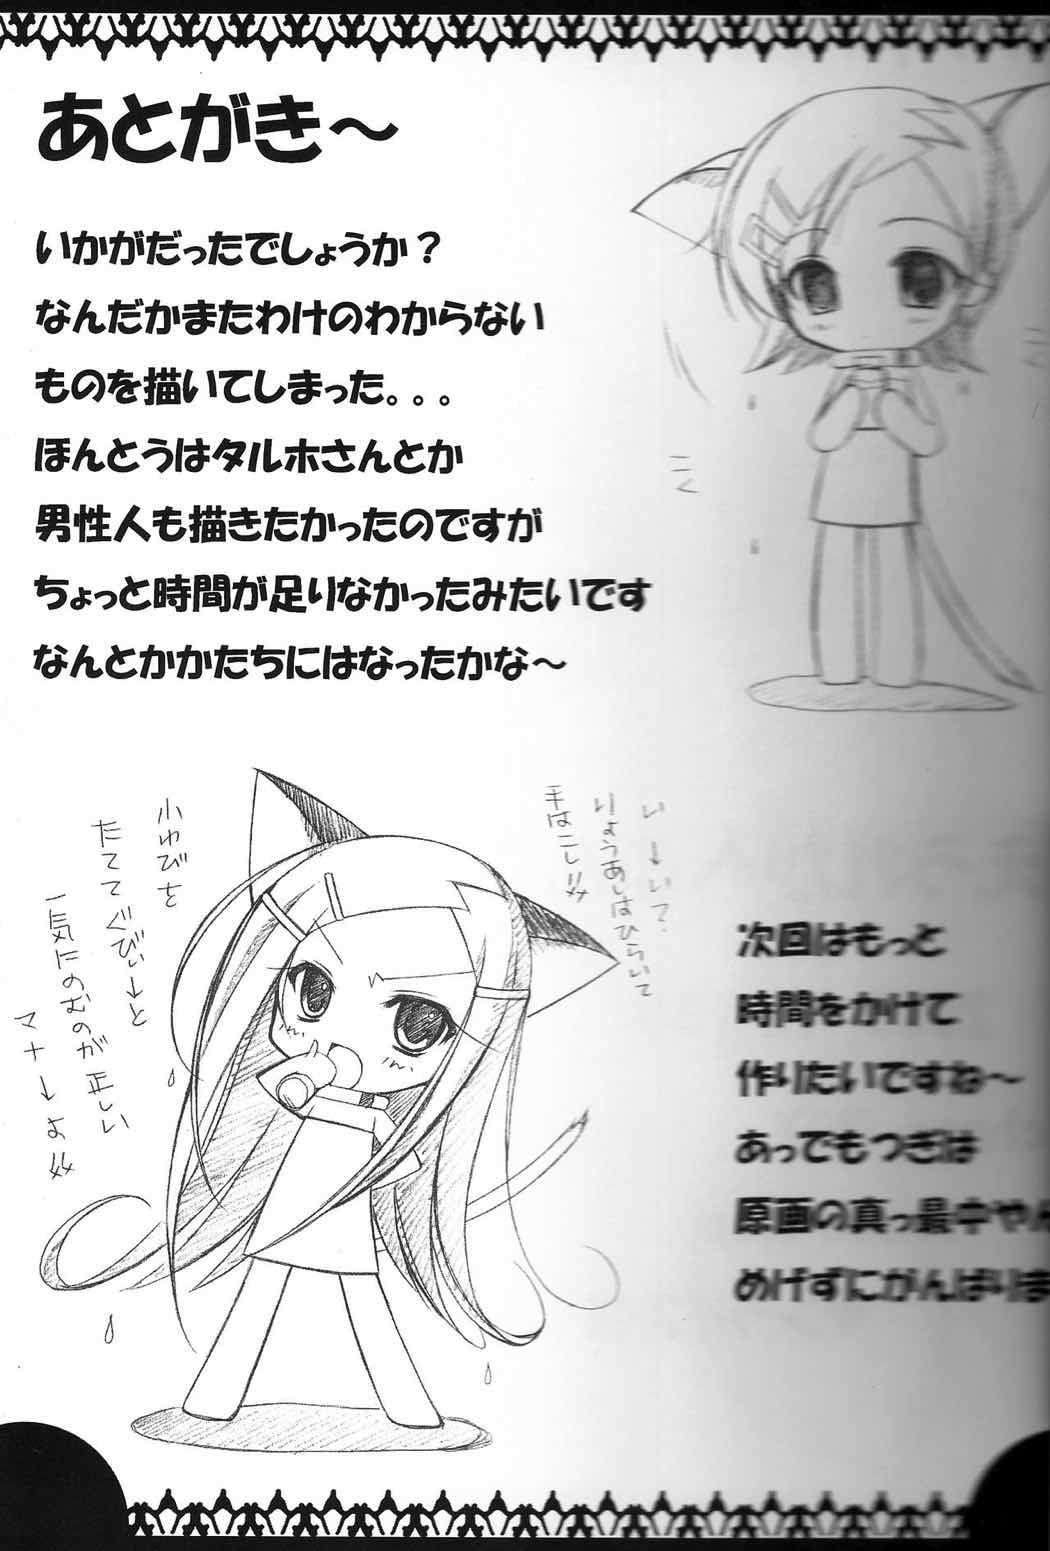 あとがき～
いかがだったでしょうか？
なんだかまたわけのわからない
ものを描いてしまった。。。
ほんとうはタルホさんとか
男性人も描きたかったのですが
ちょっと時間が足りなかったみたいです
なんとかかたちにはなったかな～
こく
い→い？
りょうあしはひらいて
手はこし!!
小ゆびを
たててぐびぃ→と
一気にのむのが正しい
マナ→よ
次回はもっと
時間をかけて
作りたいですね～
あってもつぎは
原画の真っ最中やん
めげずにがんばりま